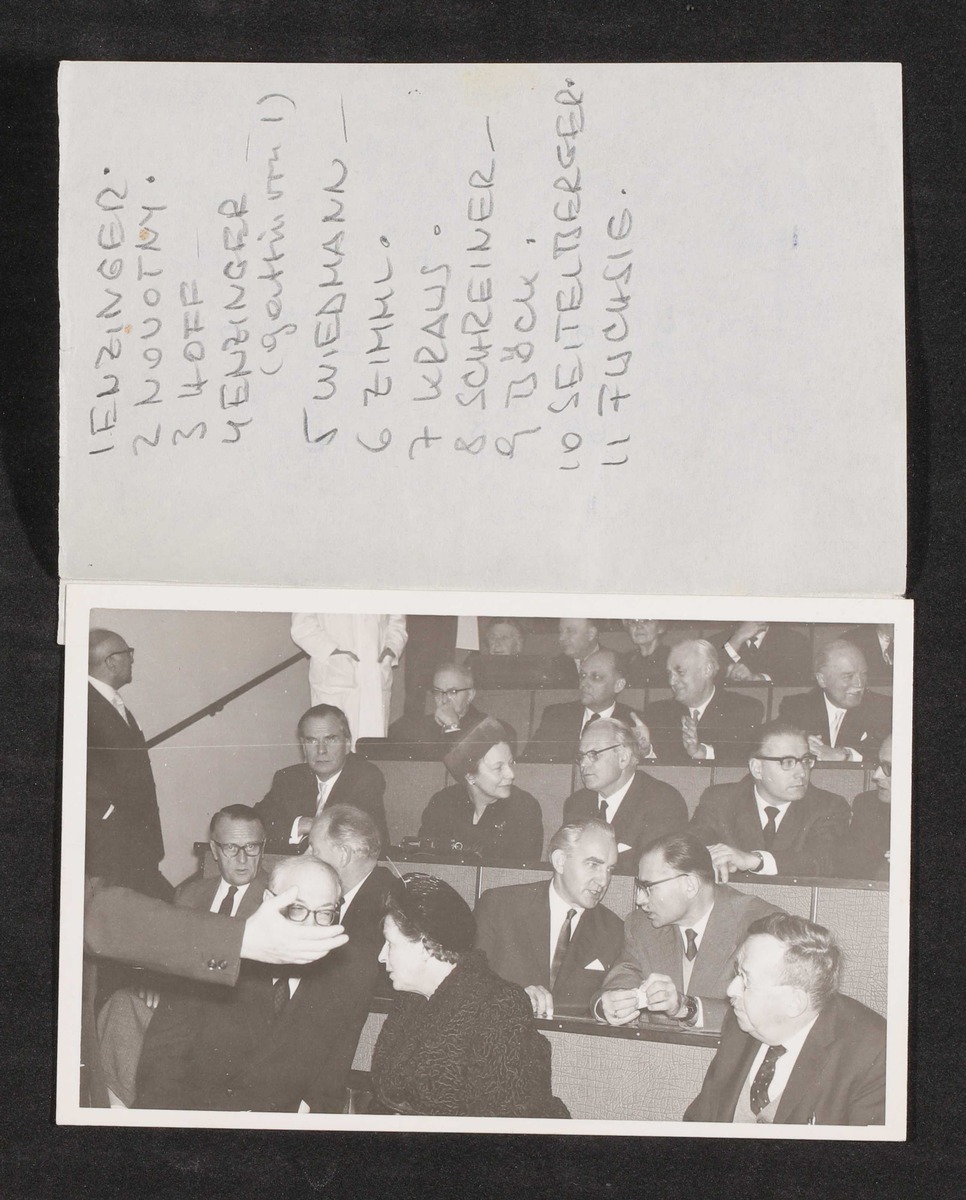 1 ENZINGER.
2 NOVOTNY.
3 HOFF —
4 ENZINGER —
(Gattin von 1)
5 WIEDMANN —
6 ZIMML.
7 KRAUS.
8 SCHREINER —
9 BÖCK.
10 SEITELBERGER.
11 FUCHSIG.